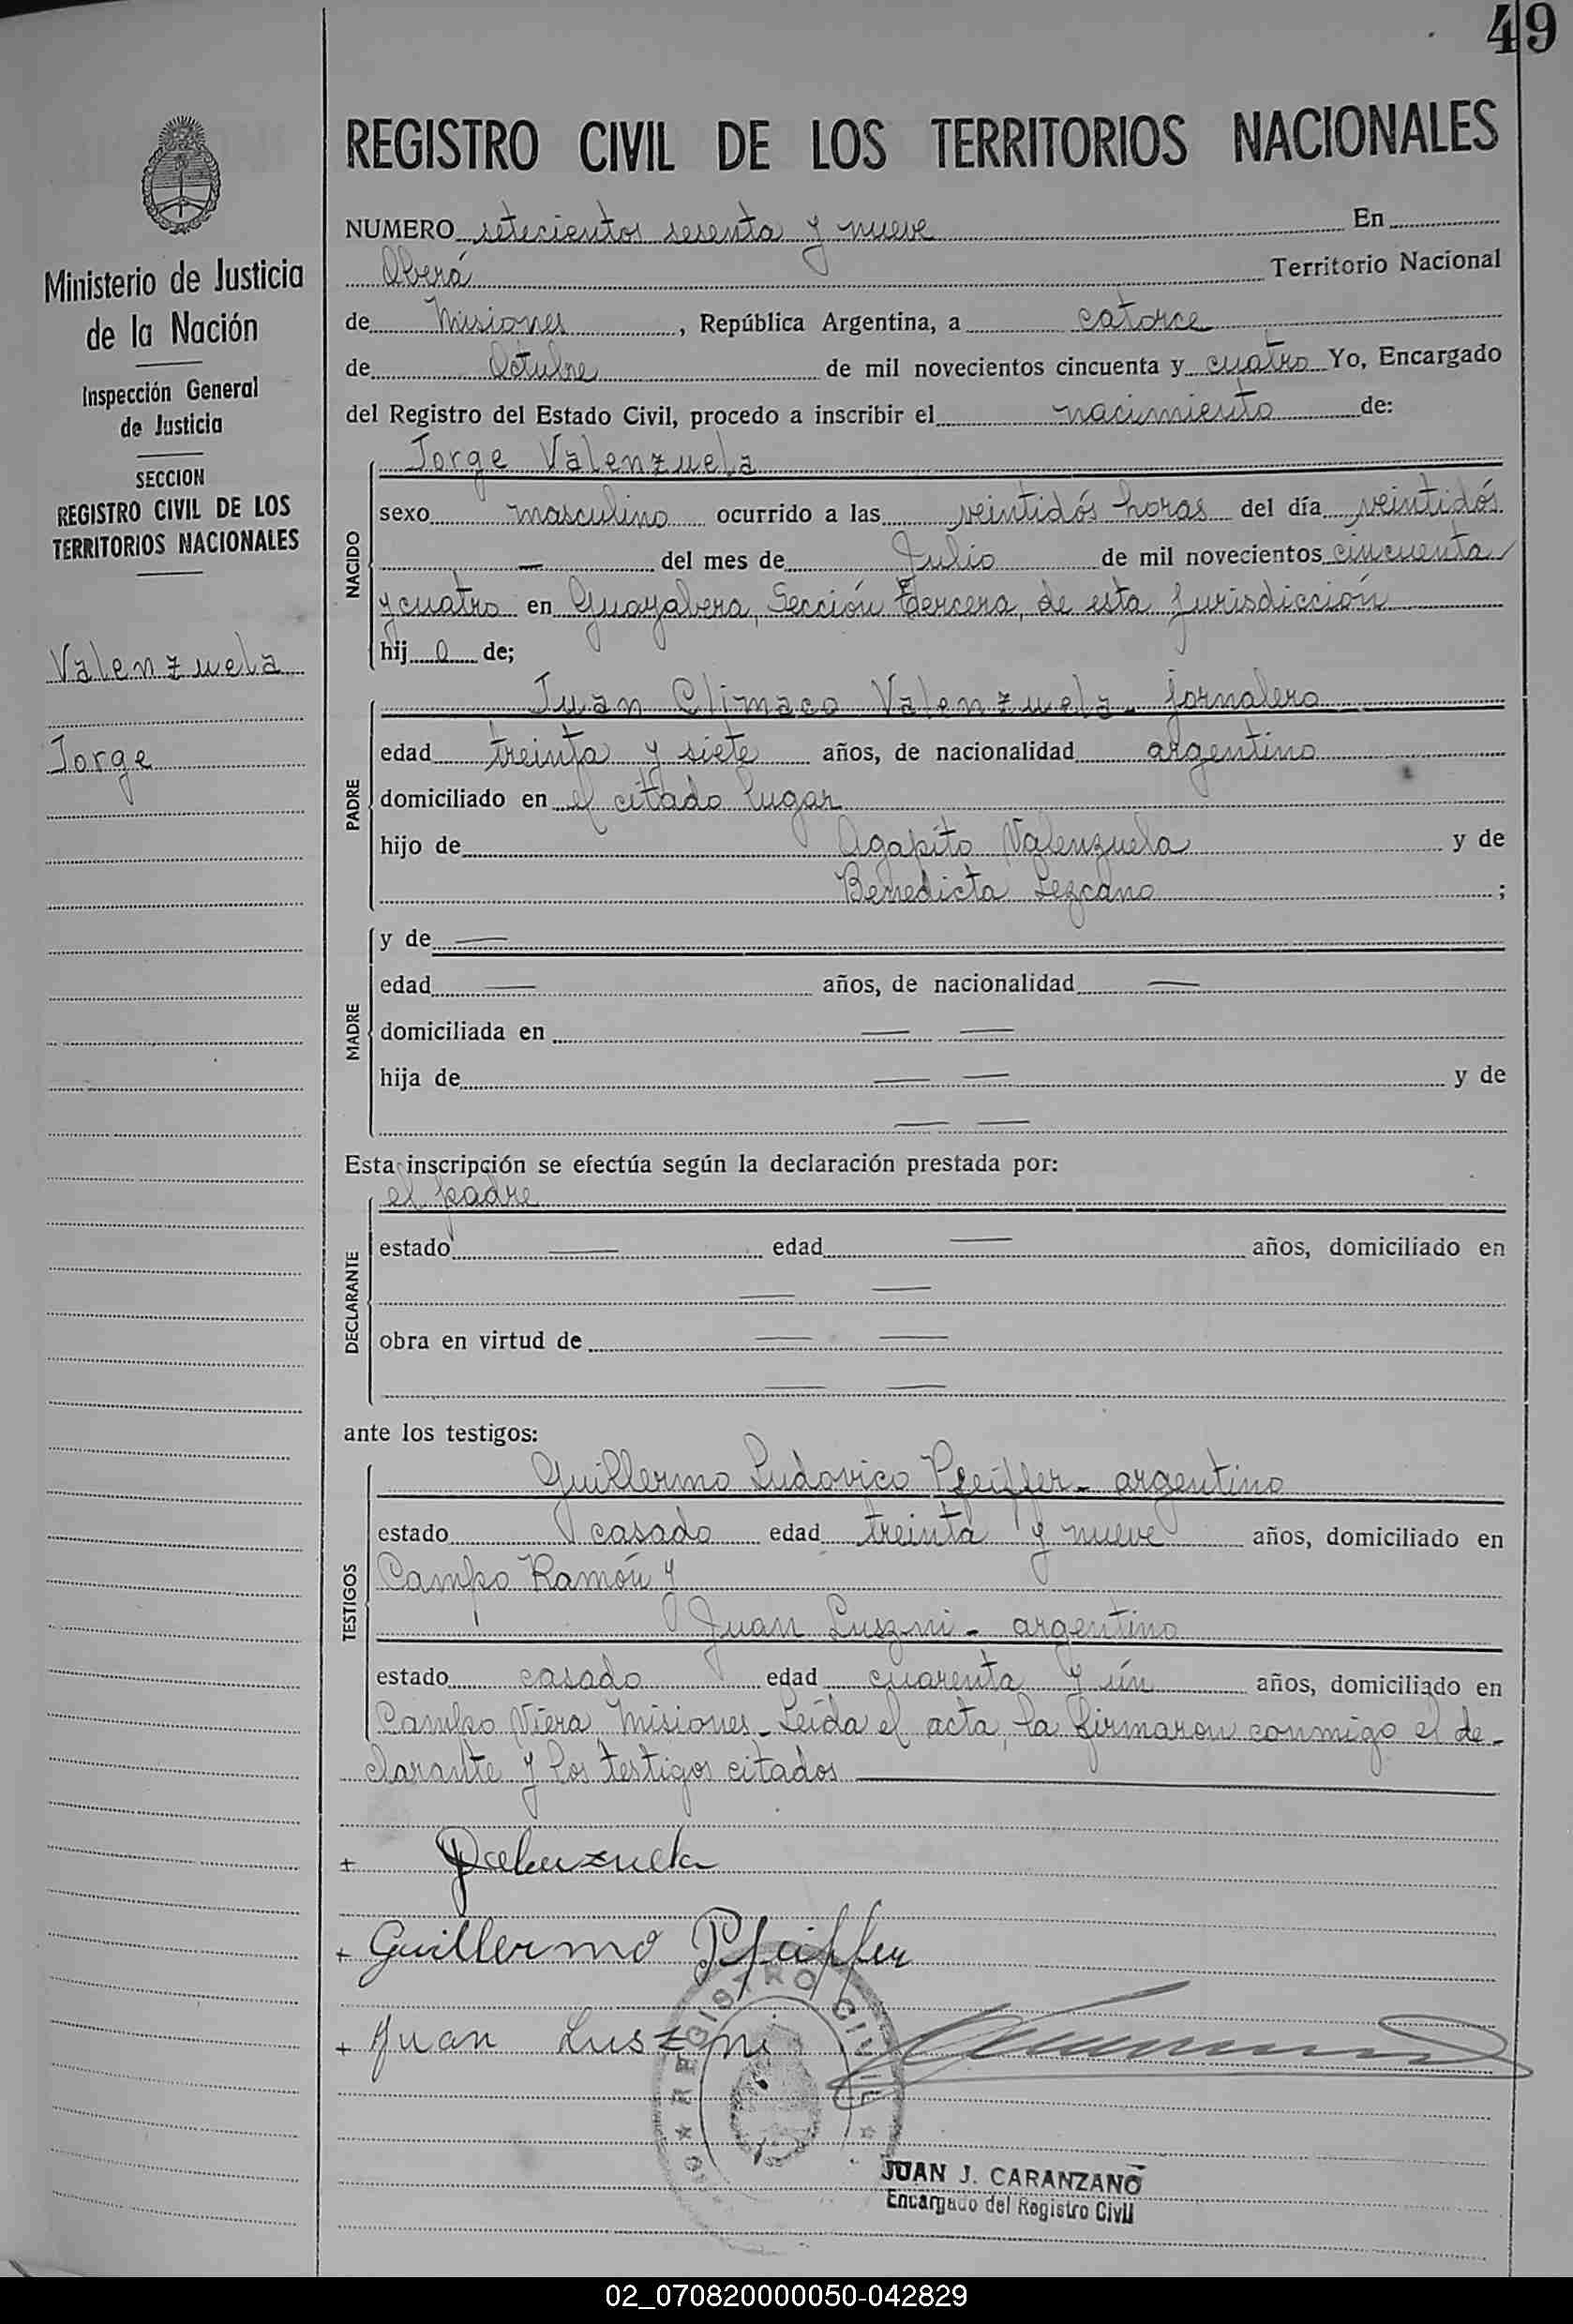 49
REGISTRO CIVIL DE LOS TERRITORIOS NACIONALES
Ministerio de Justicia
de la Nación
Inspección General
de Justicia
SECCION
REGISTRO CIVIL DE LOS
TERRITORIOS NACIONALES
Valenzuela
Jorge
NUMERO setecientos sesenta y nueve En
Oberá Territorio Nacional
de Misiones, República Argentina, a catorce
de Octubre de mil novecientos cincuenta y cuatro Yo, Encargado
del Registro del Estado Civil, procedo a inscribir el nacimiento de:
NACIDO
Jorge Valenzuela
sexo masculino ocurrido a las veintidós horas del día veintidós
— del mes de Julio de mil novecientos cincuenta
y cuatro en Guayabera, Sección Tercera, de esta jurisdicción
hij o de;
PADRE
Juan Climaco Valenzuela - jornalero
edad treinta y siete años, de nacionalidad argentino
domiciliado en el citado lugar
hijo de Agapito Valenzuela y de
Benedicta Lezcano ;
MADRE
y de —
edad — años, de nacionalidad —
domiciliada en — —
hija de — — y de
— —
Esta inscripción se efectúa según la declaración prestada por:
DECLARANTE
el padre
estado — edad — años, domiciliado en
— —
obra en virtud de — —
— —
ante los testigos:
TESTIGOS
Guillermo Ludovico Pfeiffer - argentino
estado casado edad treinta y nueve años, domiciliado en
Campo Ramón y
Juan Luszni - argentino
estado casado edad cuarenta y ún años, domiciliado en
Campo Viera, Misiones - Leída el acta, la firmaron conmigo el de-
clarante y los testigos citados
+ Valenzuela
+ Guillermo Pfeiffer
+ Juan Luszni
REGISTRO CIVIL
JUAN J. CARANZANO
Encargado del Registro Civil
02_070820000050-042829